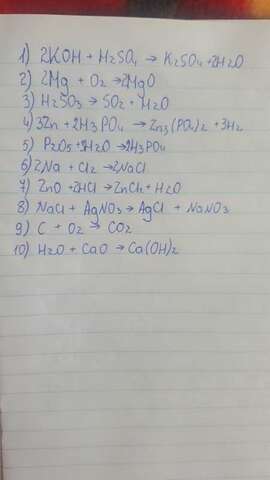 1) 2KOH + H2SO4 → K2SO4+2H2O
2) 2Mg + O2 →2MgO
3) H2SO3 → SO2 + H2O
4) 3Zn + 2H3PO4 → Zn3(PO4)2 + 3H2
5) P2O5+3H2O →2H3PO4
6) 2Na + Cl2 →2NaCl
7) ZnO +2HCl →ZnCl2 + H2O
8) NaCl + AgNO3 → AgCl + NaNO3
9) C + O2 → CO2
10) H2O + CaO → Ca(OH)2